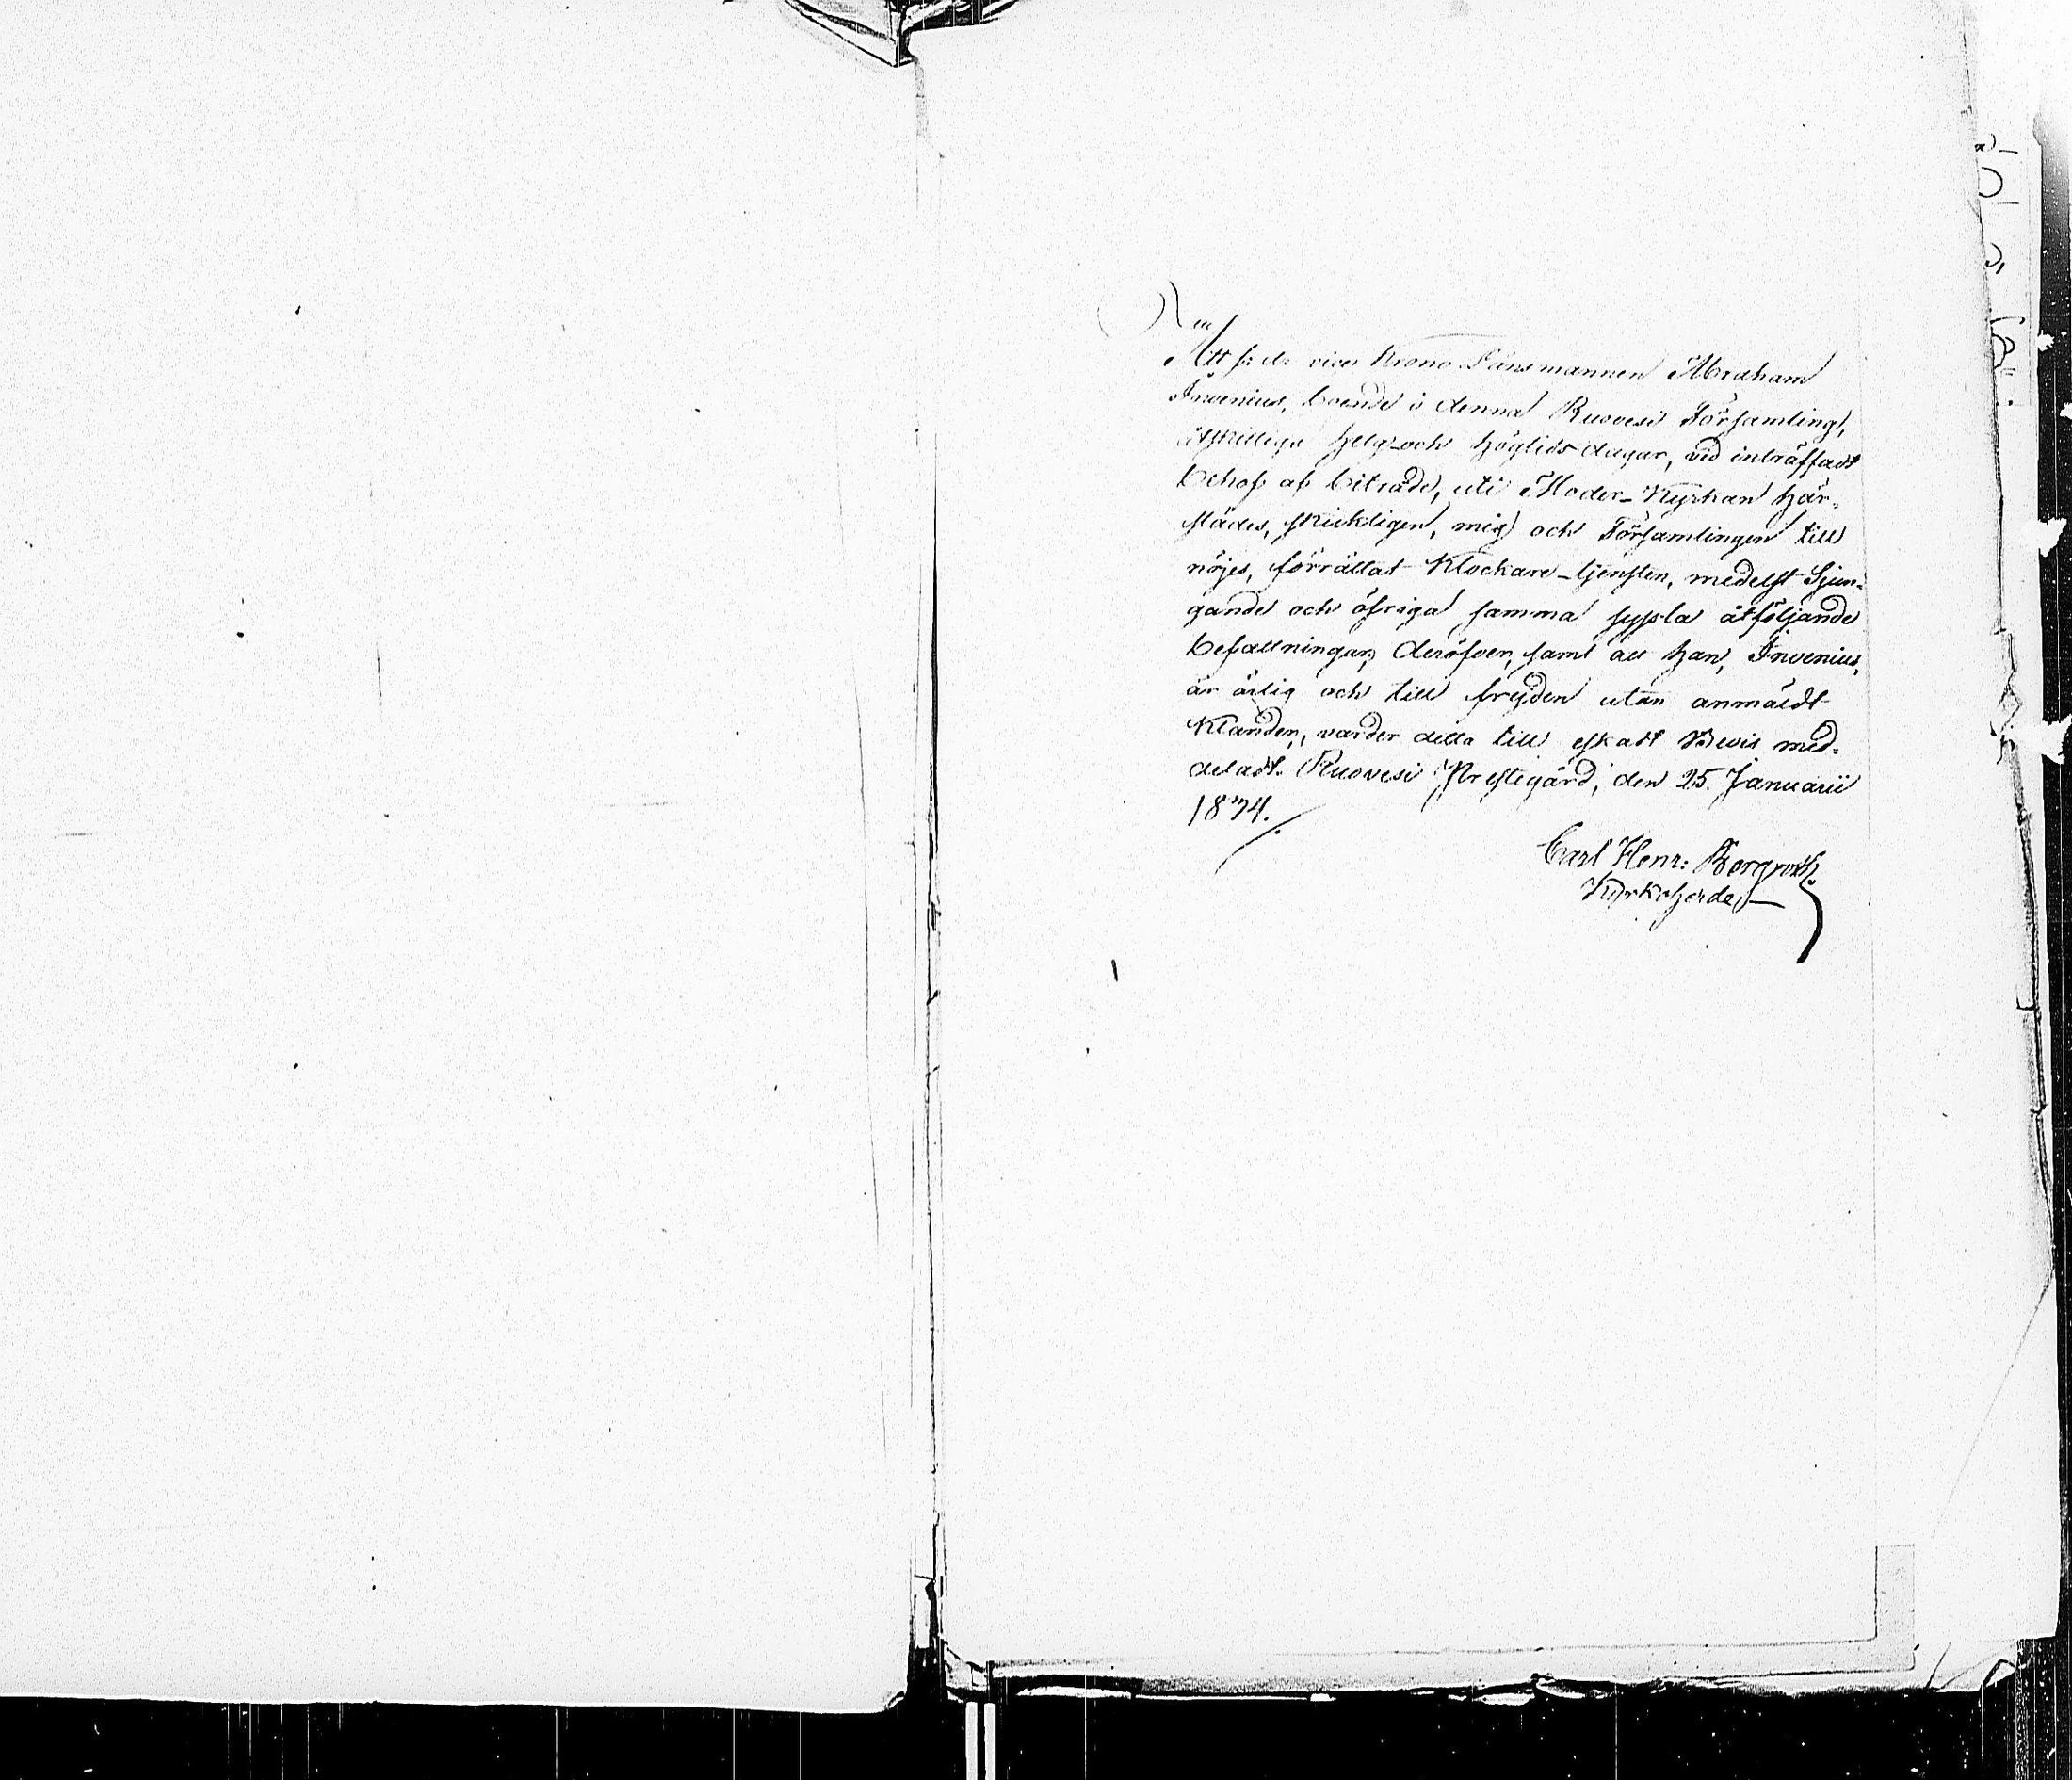 Att f: d: vice Krono Länsmannen Abraham
Invenius, boende i denna Ruovesi Församling,
åtskilliga helg- och höglids dagar, vid inträffadt
behof af biträde, uti Moder-Kyrkan här-
städes, skickligen, mig och Församlingen till
nöjes, förrättat Klockare-tjensten, medelst Sjun-
gande och öfriga samma syssla åtföljande
befattningar, deröfver, samt att han, Invenius,
är ärlig och till frejden utan anmäldt
Klander, varder detta till äskadt Bevis med-
deladt. Ruovesi Prestegård, den 25. Januarii
1874.
Carl Henr: Bergroth
Kyrkoherde